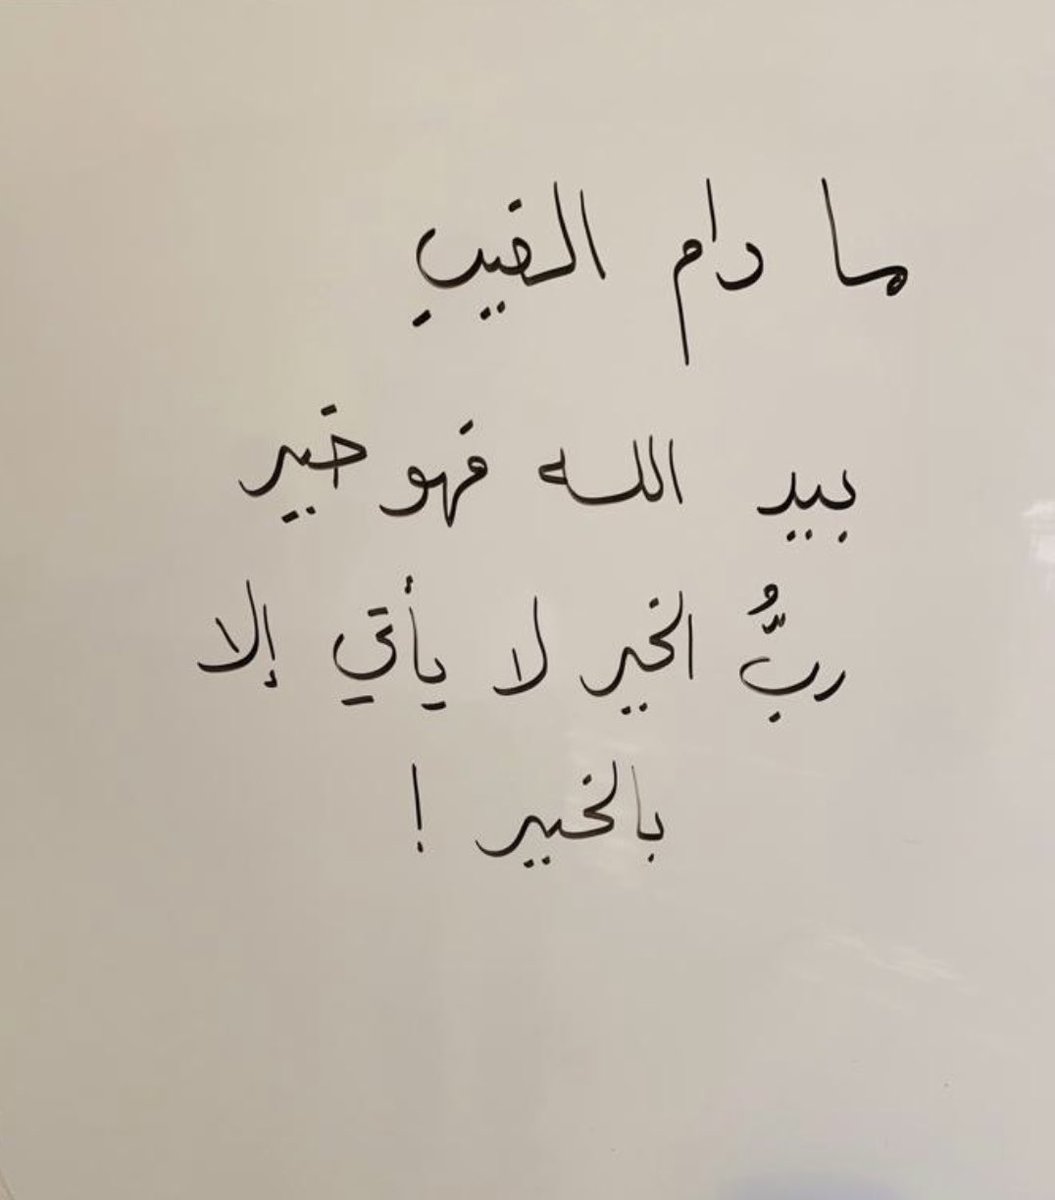 ما دام الغيب
بيد الله فهو خير
ربُّ الخير لا يأتي إلا
بالخير !